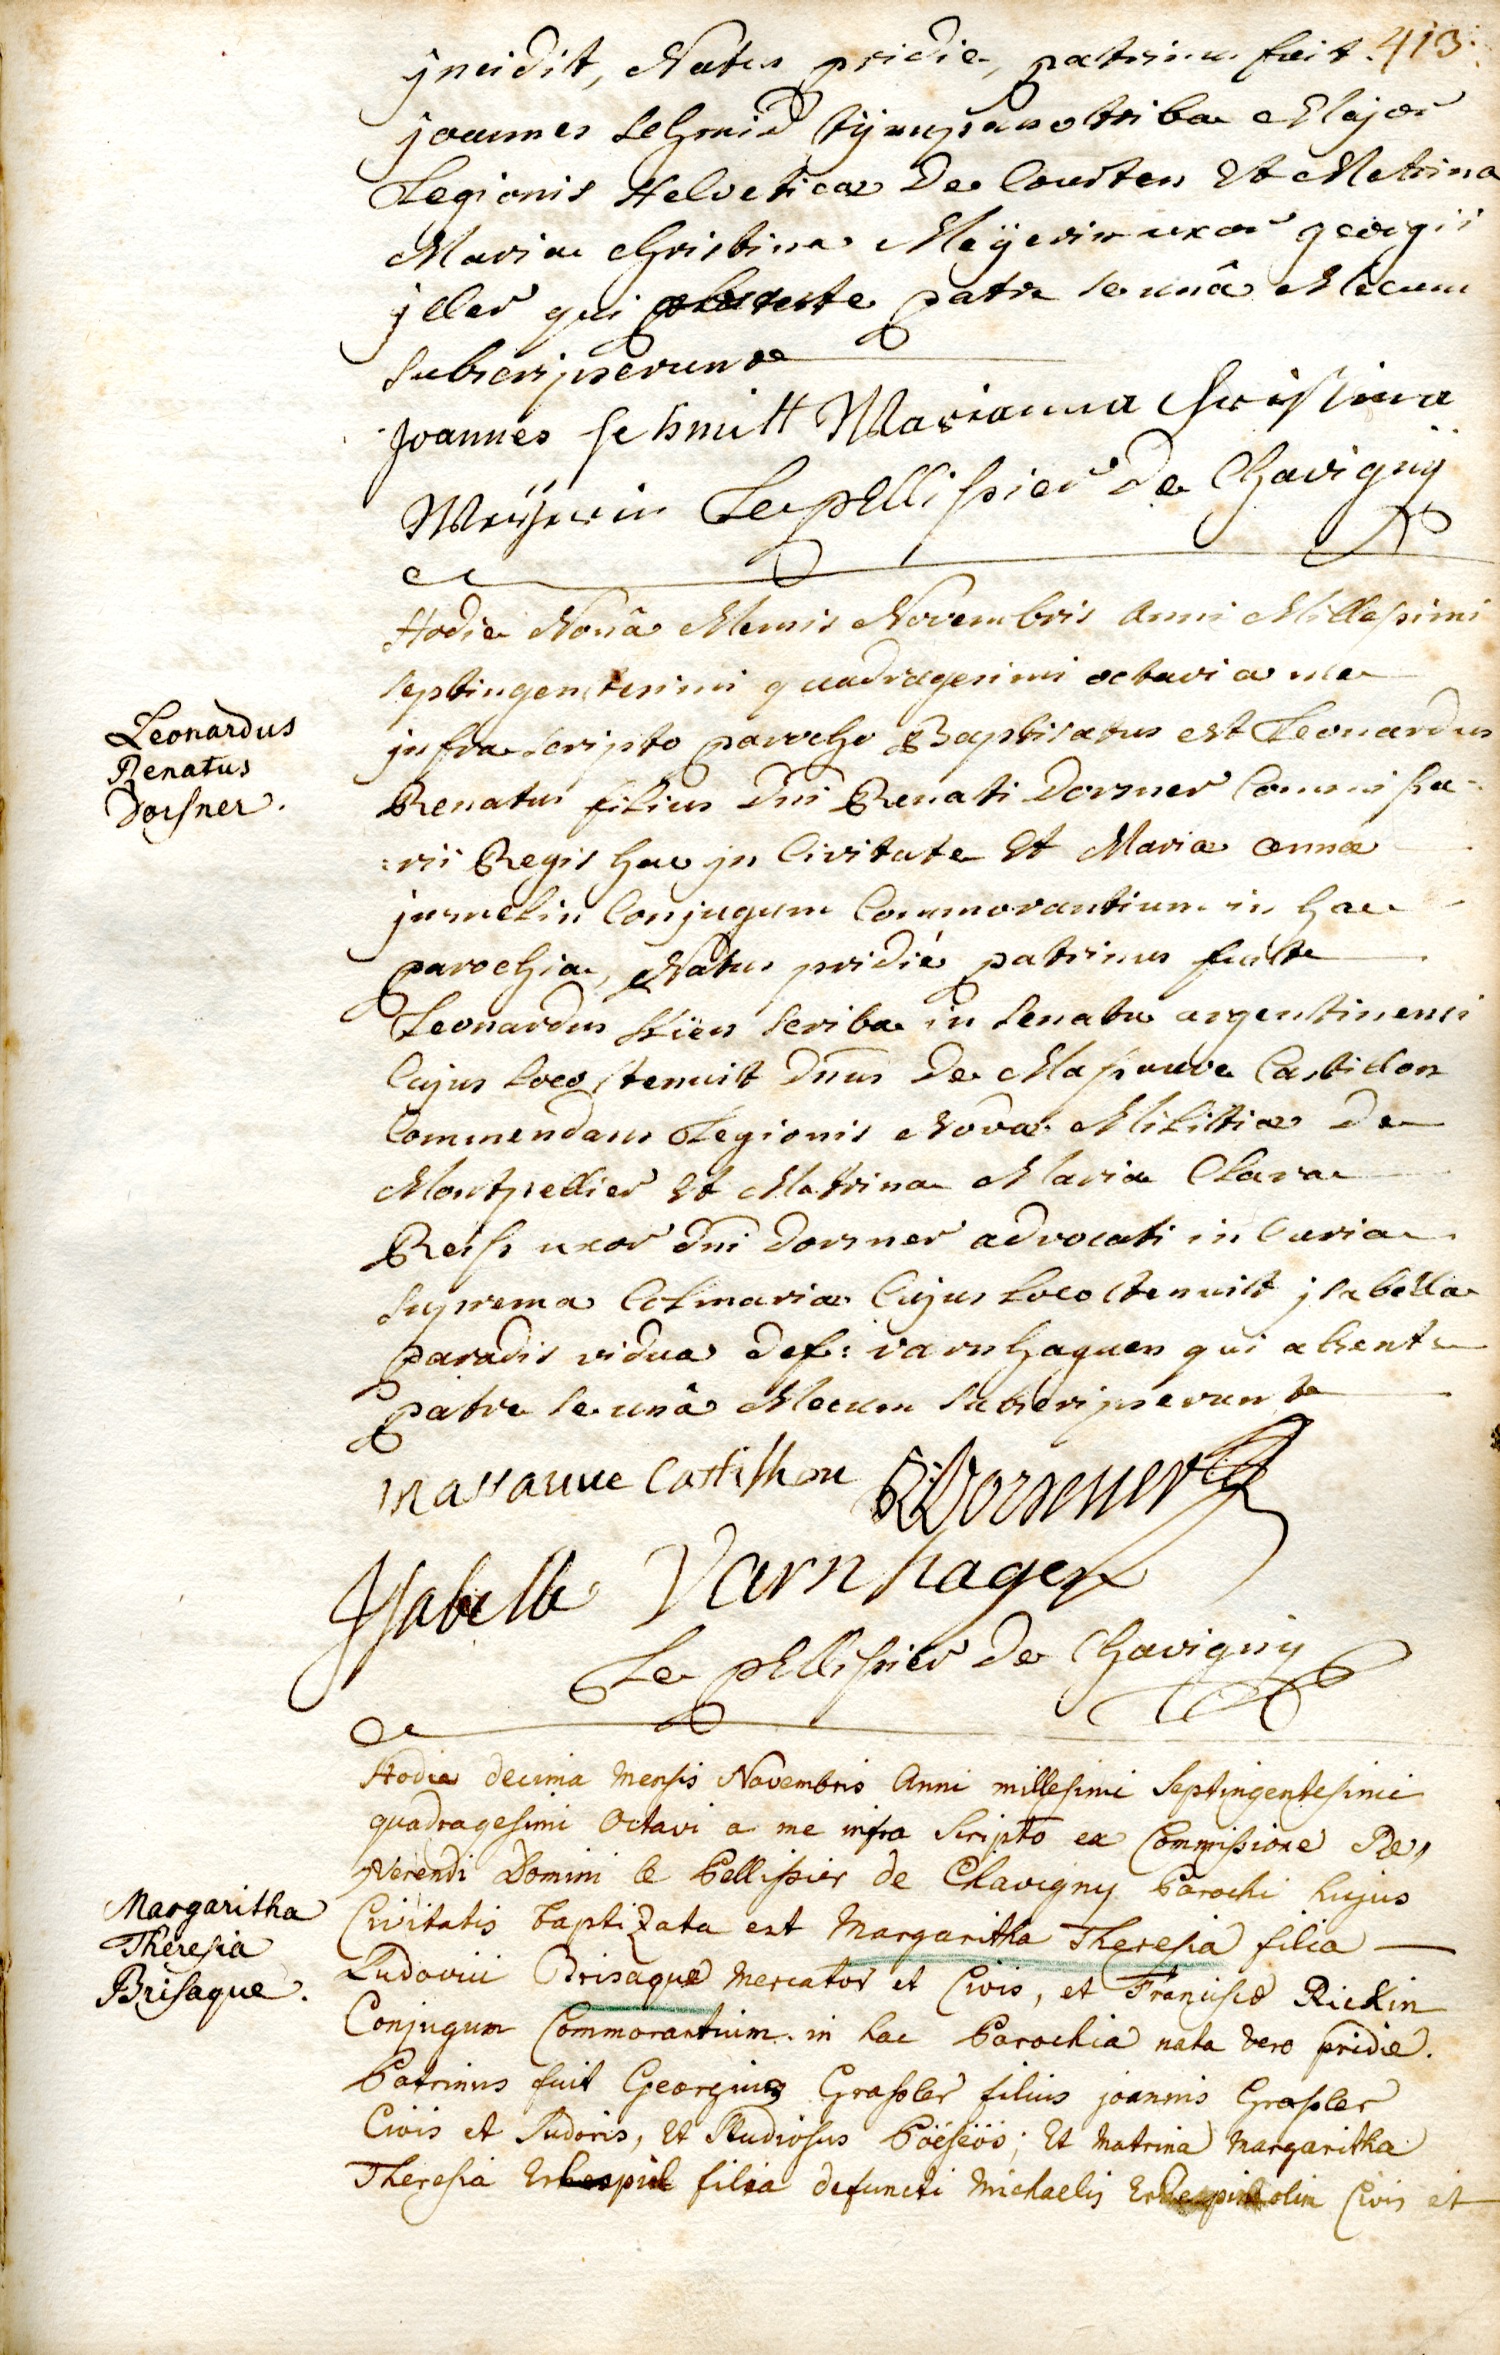 413.
jncidit, Natus pridie, patrinus fuit
joannes Schmid tympanotriba Major
Legionis Helveticæ De Courten Et Matrina
Maria Christina Meÿerin uxor georgii
jller qui patre se unâ Mecum
Subscripserunt
Joannes schmitt Marianna Christina
Meÿerin Le pellissier De Chavigny
Hodie Nonâ Mensis Novembris Anni Millesimi
septingentesimi quadragesimi octavi a me
jnfra scripto parocho Baptisatus est Leonardus
Renatus filius Dni Renati Dorsner Commissa=
=rii Regis hac jn Civitate Et Maria anna
Conjugum Commorantium in hac
parochia, Natus pridié patrinus fuit
Leonardus scriba in Senatu argentinensi
Cujus Loco tenuit Dnus De Massauve Castillon
Commendans Legionis Nova Militiæ De
Montpellier Et Matrina Maria Clara
Reiss uxor Dni Dorsner advocati in Curia
Suprema Colmaria Cujus Loco tenuit jsabella
paradis vidua def: varnhaguen qui absente
patre se unâ Mecum Subscripserunt
Leonardus
Renatus
Dorsner.
Massauve Castilhon R Dorsner
Ysabelle Varnhagen
Le pellissier De Chavigny
Hodie decima Mensis Novembris Anni millesimi Septingentesimi
quadragesimi Octavi a me infra Scripto ex Commissione Re,,
Verendi Domini le Pellissier de Chavigny Parochi hujus
Civitatis baptizata est Margaritha Theresia filia
Ludovici Brisaque Mercator et Civis, et Franciscæ Rickin
Conjugum Commorantium in hac Parochia nata vero pridie.
Patrinus fuit Georgius Grassler filius joannis Grassler
Civis et Sudoris, Et Studiosus Poëseös; Et Matrina Margaritha
Theresia filia defuncti Michaelis olim Civis et
Margaritha
Theresia
Brisaque.